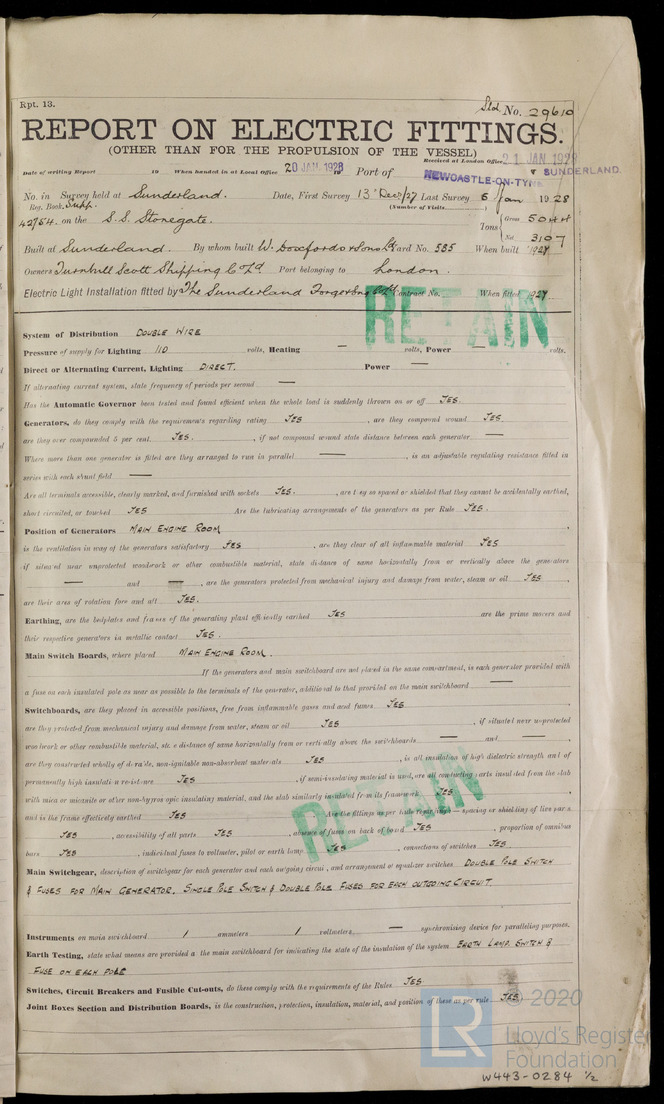 Rpt. 13.
Sld No. 29610
REPORT ON ELECTRIC FITTINGS.
(OTHER THAN FOR THE PROPULSION OF THE VESSEL)
Received at London Office 21 JAN 1928
Date of writing Report 19 When handed in at Local Office 20 JAN 1928 Port of NEWCASTLE-ON-TYNE SUNDERLAND.
No. in Survey held at Sunderland. Date, First Survey 13 Dec/27 Last Survey 6 Jan 1928
Reg. Book. Supp. (Number of Visits)
42754 on the S.S. Stonegate. Tons { Gross 5044
Net 3107
Built at Sunderland. By whom built W. Doxford & Sons Ld Yard No. 585 When built 1927
Owners Turnbull Scott Shipping Co Ld Port belonging to London.
Electric Light Installation fitted by The Sunderland Forge & Eng Co Ld Contract No. When fitted 1927
RETAIN
System of Distribution DOUBLE WIRE
Pressure of supply for Lighting 110 volts, Heating — volts, Power — volts.
Direct or Alternating Current, Lighting DIRECT. Power —
If alternating current system, state frequency of periods per second —
Has the Automatic Governor been tested and found efficient when the whole load is suddenly thrown on or off YES.
Generators, do they comply with the requirements regarding rating YES, are they compound wound YES
are they over compounded 5 per cent. YES., if not compound wound state distance between each generator —
Where more than one generator is fitted are they arranged to run in parallel —, is an adjustable regulating resistance fitted in
series with each shunt field —
Are all terminals accessible, clearly marked, and furnished with sockets YES., are they so spaced or shielded that they cannot be accidentally earthed,
short circuited, or touched YES Are the lubricating arrangements of the generators as per Rule YES.
Position of Generators MAIN ENGINE ROOM
is the ventilation in way of the generators satisfactory YES, are they clear of all inflammable material YES
if situated near unprotected woodwork or other combustible material, state distance of same horizontally from or vertically above the generators
— and —, are the generators protected from mechanical injury and damage from water, steam or oil YES,
are their axes of rotation fore and aft YES.
Earthing, are the bedplates and frames of the generating plant efficiently earthed YES are the prime movers and
their respective generators in metallic contact YES.
Main Switch Boards, where placed MAIN ENGINE ROOM.
If the generators and main switchboard are not placed in the same compartment, is each generator provided with
a fuse on each insulated pole as near as possible to the terminals of the generator, additional to that provided on the main switchboard —
Switchboards, are they placed in accessible positions, free from inflammable gases and acid fumes YES,
are they protected from mechanical injury and damage from water, steam or oil YES, if situated near unprotected
woodwork or other combustible material, state distance of same horizontally from or vertically above the switchboards — and —,
are they constructed wholly of durable, non-ignitable non-absorbent materials YES, is all insulation of high dielectric strength and of
permanently high insulation resistance YES, if semi-insulating material is used, are all conducting parts insulated from the slab
with mica or micanite or other non-hygroscopic insulating material, and the slab similarly insulated from its framework YES,
and is the frame effectively earthed YES Are the fittings as per Rule regarding:— spacing or shielding of live parts
YES, accessibility of all parts YES, absence of fuses on back of board YES, proportion of omnibus
bars YES, individual fuses to voltmeter, pilot or earth lamp YES, connections of switches YES
RETAIN
Main Switchgear, description of switchgear for each generator and each outgoing circuit, and arrangement of equalizer switches DOUBLE POLE SWITCH
& FUSES FOR MAIN GENERATOR, SINGLE POLE SWITCH & DOUBLE POLE FUSES FOR EACH OUTGOING CIRCUIT.
Instruments on main switchboard 1 ammeters 1 voltmeters, — synchronising device for paralleling purposes.
Earth Testing, state what means are provided at the main switchboard for indicating the state of the insulation of the system EARTH LAMP SWITCH &
FUSE ON EACH POLE
Switches, Circuit Breakers and Fusible Cut-outs, do these comply with the requirements of the Rules YES
Joint Boxes Section and Distribution Boards, is the construction, protection, insulation, material, and position of these as per rule YES
© 2020
LR
Lloyd's Register
Foundation
W443-0284 ½